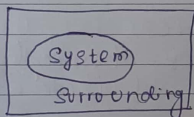 System
Surrounding